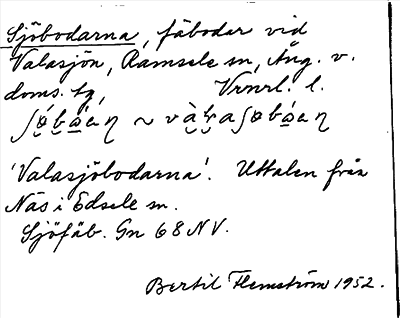 Sjöbodarna, fäbodar vid
Valasjön, Ramsele sn, Ång. v.
doms. tg, Vrnrl. l.
'Valasjöbodarna'. Uttalen från
Näs i Edsele sn.
Sjöfäb. Gn 68 NV.
Bertil Flemström 1952.